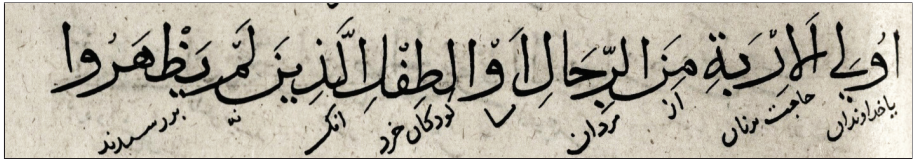 اُولِي الْاِرْبَةِ مِنَ الرِّجَالِ اَوِ الطِّفْلِ الَّذِينَ لَمْ يَظْهَرُوا
یا خداوندان حاجت بزنان از مردان یا کودکان خرد آنک نه بررسیدند